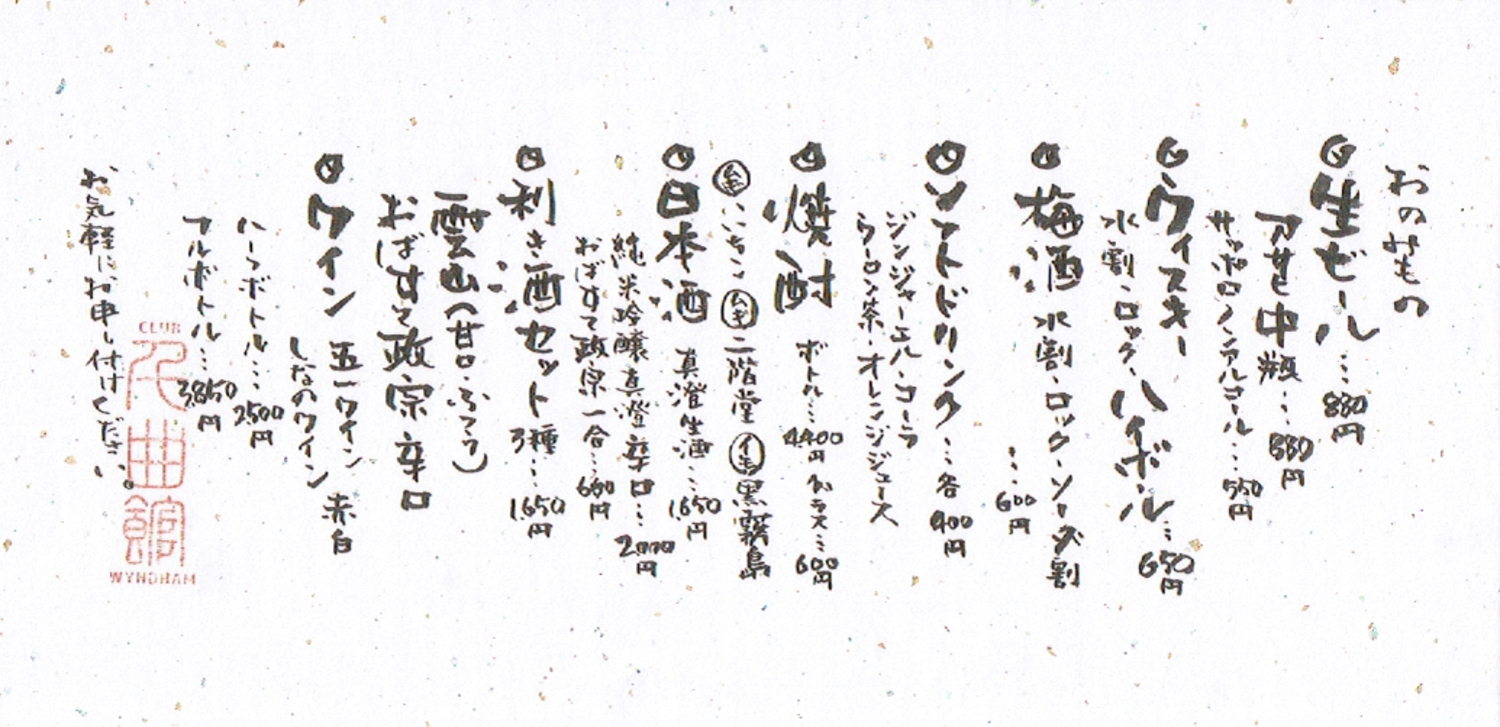 おのみもの
◎生ビール…880円
アサヒ中瓶…880円
サッポロノンアルコール…550円
◎ウィスキー
水割・ロック・ハイボール…650円
◎梅酒 水割・ロック・ソーダ割
…600円
◎ソフトドリンク…各400円
ジンジャーエール・コーラ
ウーロン茶・オレンジジュース
◎焼酎 ボトル…4,400円 グラス…600円
いいちこ 二階堂 黒霧島
◎日本酒 真澄生酒…1,650円
純米吟醸真澄辛口…2,000円
おばすて政宗一合…680円
◎利き酒セット 3種…1,650円
雲山(甘口・ふつう)
おばすて政宗 辛口
◎ワイン 五一ワイン 赤白
しなのワイン
ハーフボトル…2,500円
フルボトル…3,850円
お気軽にお申し付けください。
CLUB
曲館
WYNDHAM